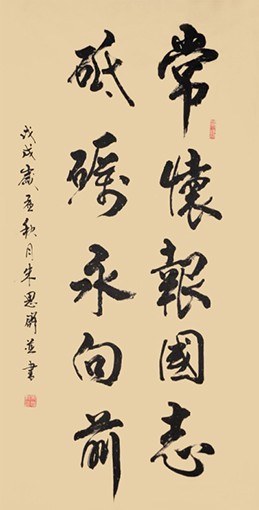 常懷報國志
砥礪永向前
戊戌歲孟秋月朱恩並書